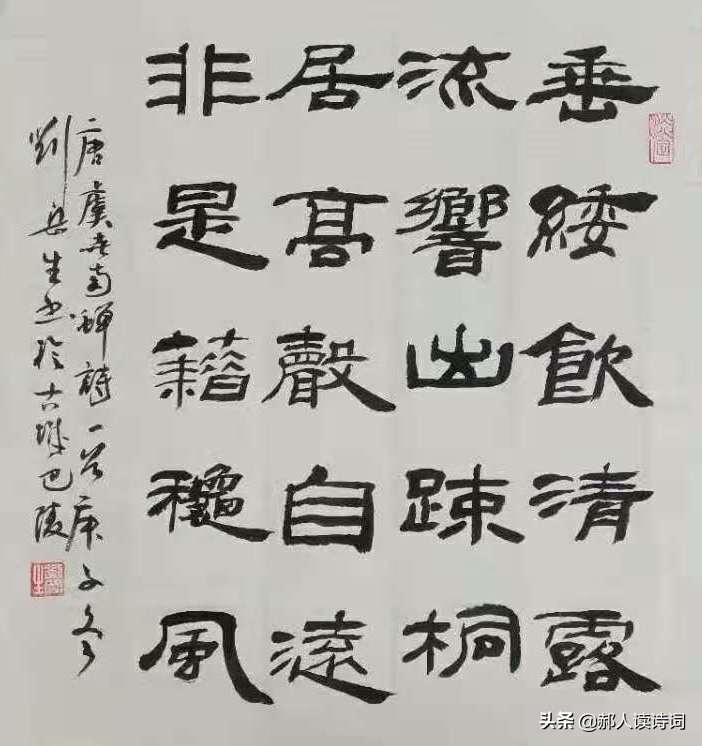 垂緌飲清露
流響出疎桐
居高聲自遠
非是藉龝風
唐虞世南蟬詩一首庚子冬
劉岳生書於古城巴陵
头条 @郝人读诗词